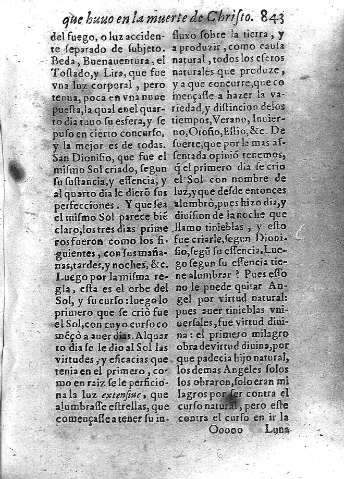 que huuo en la muerte de Christo. 843
del fuego, o luz acciden
te separado de subjeto.
Beda, Buenauentura, el
Tostado, y Lira, que fue
vna luz corporal, pero
tenua, poca en vna nuue
puesta, la qual en el quar
to dia tauo su esfera, y se
puso en cierto concurso,
y la mejor es de todas.
San Dionisio, que fue el
mismo Sol criado, segun
su sustancia, y essencia, y
al quarto dia le dierõ sus
perfecciones. Y que sea
el mismo Sol parece biẽ
claro, los tres dias prime
ros fueron como los si-
guientes, con sus maña-
nas, tardes, y noches, &c.
Luego por la misma re-
gla, esta es el orbe del
Sol, y su curso: luego lo
primero que se criò fue
el Sol, con cuyo curso co
mẽçò a auer dias. Al quar
to dia se le dio al Sol las
virtudes, y eficacias que
tenia en el primero, co-
mo en raiz se le perficio
na la luz extensiue, que
alumbrasse estrellas, que
començasse a tener su in-
fluxo sobre la tierra, y
a produzir, como causa
natural, todos los efetos
naturales que produze,
y a que concurre, que co
mençasse a hazer la va-
riedad, y distincion de los
tiempos, Verano, Inuier-
no, Otoño, Estio, &c. De
suerte, que por la mas as-
sentada opiniõ tenemos,
q̃ el primero dia se crio
el Sol con nombre de
luz, y que desde entonces
alumbrò, pues hizo dia, y
diuision de la noche que
llamo tinieblas, y esto
fue criarle, segun Dioni-
sio, segũ su essencia. Lue-
go segun su essencia tie-
ne alumbrar? Pues esso
no le puede quitar An-
gel por virtud natural:
pues auer tinieblas vni-
uersales, fue virtud diui-
na: el primero milagro
obra de virtud diuina, por
que padecia hijo natural,
los demas Angeles solos
los obraron, solo eran mi
lagros por ser contra el
curso natural, pero este
contra el curso en ir la
Ooooo Luna